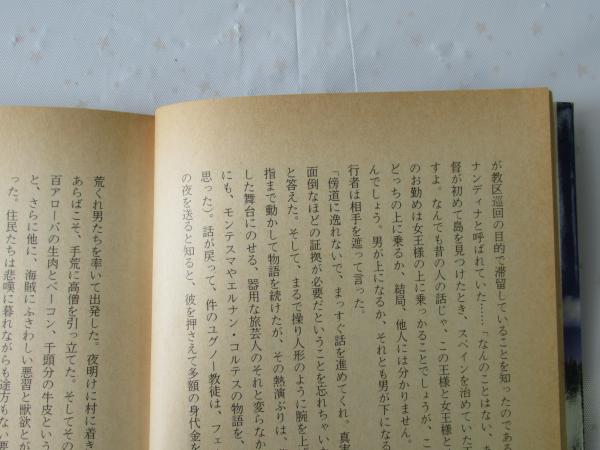 が教区巡回の目的で滞留していることを知ったのである
ナンディナと呼ばれていた……「なんのことはない、
督が初めて島を見つけたとき、スペインを治めていた
すよ。なんでも昔の人の話じゃ、この王様と女王様と
のお勤めは女王様の上に乗っかることでしょうが、こ
どっちの上に乗るか、結局、他人には分かりません。
んでしょう。男が上になるか、それとも男が下になる
行者は相手を遮って言った。
「傍道に逸れないで、まっすぐ話を進めてくれ。真実
面倒なほどの証拠が必要だということを忘れちゃいた
と答えた。そして、まるで操り人形のように腕を上げ
指まで動かして物語を続けたが、その熱演ぶりは、
した舞台にのせる、器用な旅芸人のそれと変らなか
にも、モンテスマやエルナン・コルテスの物語を、
思った)。話が戻って、件のユグノー教徒は、フェ
の夜を送ると知ると、彼を押さえて多額の身代金を
荒くれ男たちを率いて出発した。夜明けに村に着き
あらばこそ、手荒に高僧を引っ立てた。そしてその
百アローバの生肉とベーコン、千頭分の牛皮という
と、さらに他に、海賊にふさわしい悪習と獣欲とが
った。住民たちは悲嘆に暮れながらも途方もない要